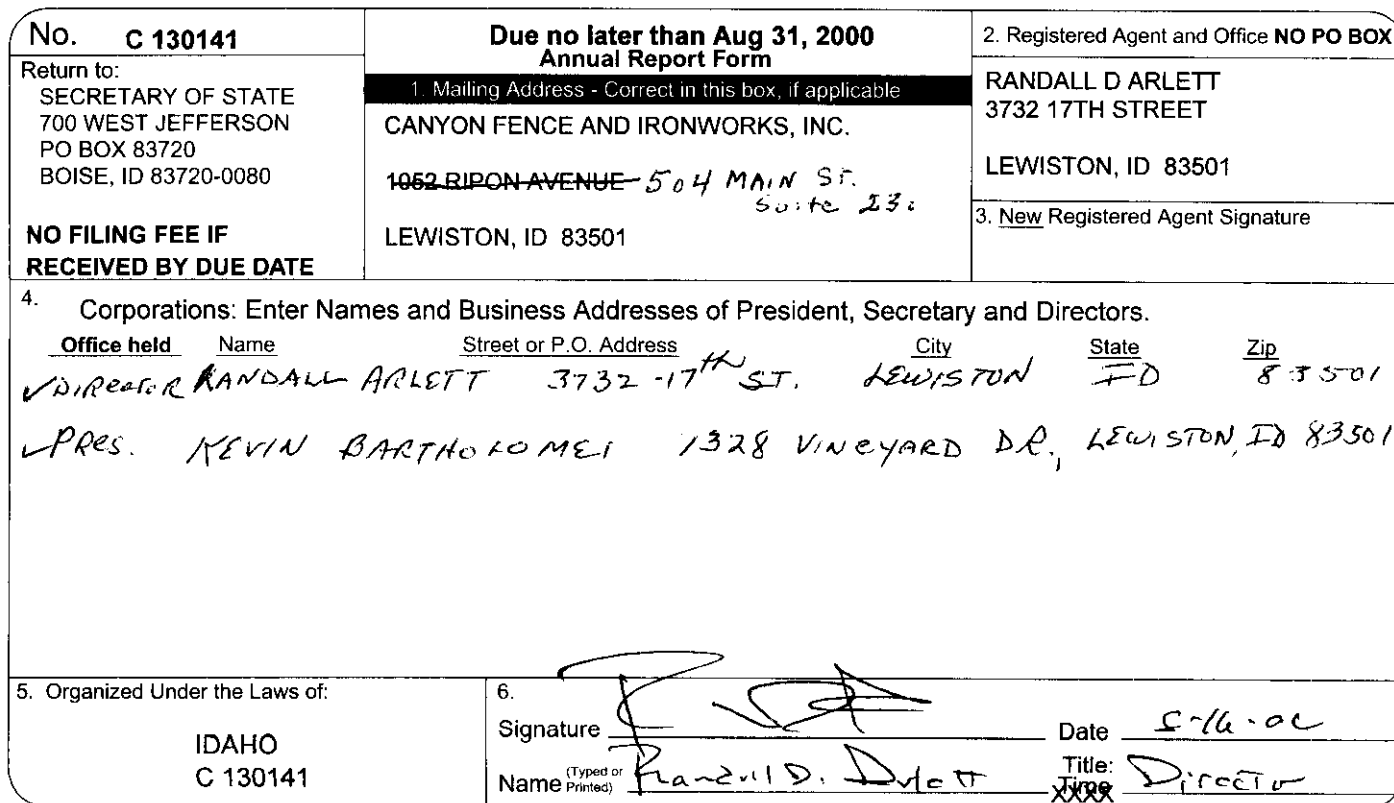 No. C 130141
Return to:
SECRETARY OF STATE
700 WEST JEFFERSON
PO BOX 83720
BOISE, ID 83720-0080
NO FILING FEE IF
RECEIVED BY DUE DATE
Due no later than Aug 31, 2000
Annual Report Form
1. Mailing Address - Correct in this box, if applicable
CANYON FENCE AND IRONWORKS, INC.
1052 RIPON AVENUE 504 MAIN ST.
Suite
LEWISTON, ID 83501
2. Registered Agent and Office NO PO BOX
RANDALL D ARLETT
3732 17TH STREET
LEWISTON, ID 83501
3. New Registered Agent Signature
4. Corporations: Enter Names and Business Addresses of President, Secretary and Directors.
Office held Name Street or P.O. Address City State Zip
✓DIRECTOR RANDALL ARLETT 3732-17th ST. LEWISTON ID 83501
✓PRes. KEVIN BARTHOLOMEI 1328 VINEYARD DR., LEWISTON, ID 83501
5. Organized Under the Laws of:
IDAHO
C 130141
6.
Signature Date
Name (Typed or Printed) Randall D. Arlett Title: Director